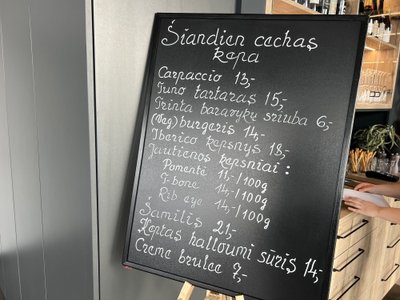 Šiandien cechas
kepa
Carpaccio 13,-
Tuno tartaras 15,-
Trinta baravykų sriuba 6,-
(Veg) burgeris 14,-
Iberico kepsnys 18,-
Jautienos kepsniai:
Pomentė 11,-/100g
T-bone 14,-/100g
Rib eye 14,-/100g
Šamilis 21,-
Keptas halloumi sūris 14,-
Creme brulee 7,-